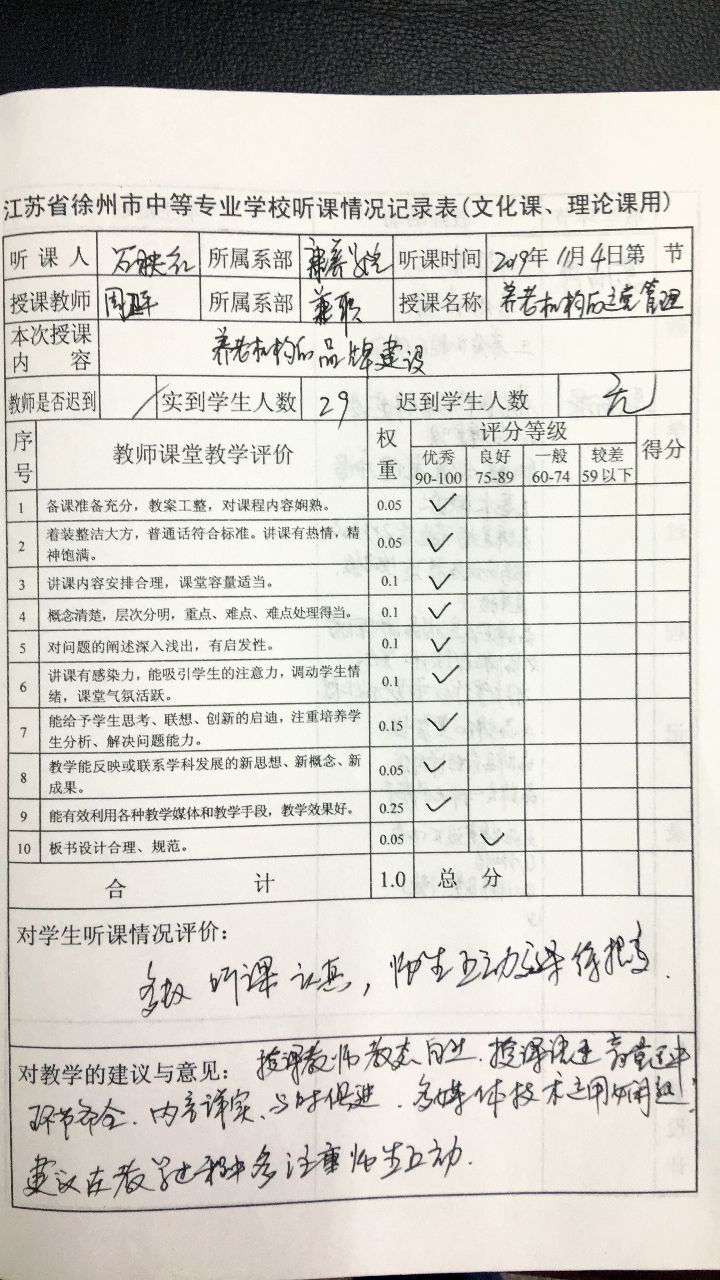 江苏省徐州市中等专业学校听课情况记录表(文化课、理论课用)
听课人 石映红 所属系部 康养学院 听课时间 2019年11月4日第 节
授课教师 所属系部 兼职 授课名称 养老机构的运营管理
本次授课内容 养老机构的品牌建设
教师是否迟到 / 实到学生人数 29 迟到学生人数 无
序号 教师课堂教学评价 权重 评分等级 得分
优秀 90-100 良好 75-89 一般 60-74 较差 59以下
1 备课准备充分，教案工整，对课程内容娴熟。 0.05 ✓
2 着装整洁大方，普通话符合标准。讲课有热情，精
神饱满。 0.05 ✓
3 讲课内容安排合理，课堂容量适当。 0.1 ✓
4 概念清楚，层次分明，重点、难点、难点处理得当。 0.1 ✓
5 对问题的阐述深入浅出，有启发性。 0.1 ✓
6 讲课有感染力，能吸引学生的注意力，调动学生情
绪，课堂气氛活跃。 0.1 ✓
7 能给予学生思考、联想、创新的启迪，注重培养学
生分析、解决问题能力。 0.15 ✓
8 教学能反映或联系学科发展的新思想、新概念、新
成果。 0.05 ✓
9 能有效利用各种教学媒体和教学手段，教学效果好。 0.25 ✓
10 板书设计合理、规范。 0.05 ✓
合计 1.0 总分
对学生听课情况评价：
听课认真，师生互动
对教学的建议与意见： 授课教师教态自然.授课语速音量适中
环节齐全.内容详实、与时俱进.多媒体技术运用娴熟;
建议在教学过程中多注重师生互动.